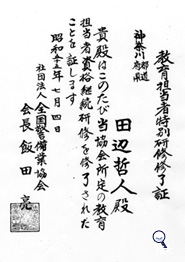 教育担当者特別研修修了証
神奈川都道府県
田辺哲人殿
貴殿はこのたび当協会所定の教育
担当者資格継続研修を修了された
ことを証します
昭和五十五年七月四日
社団法人全国警備業協会
会長飯田亮